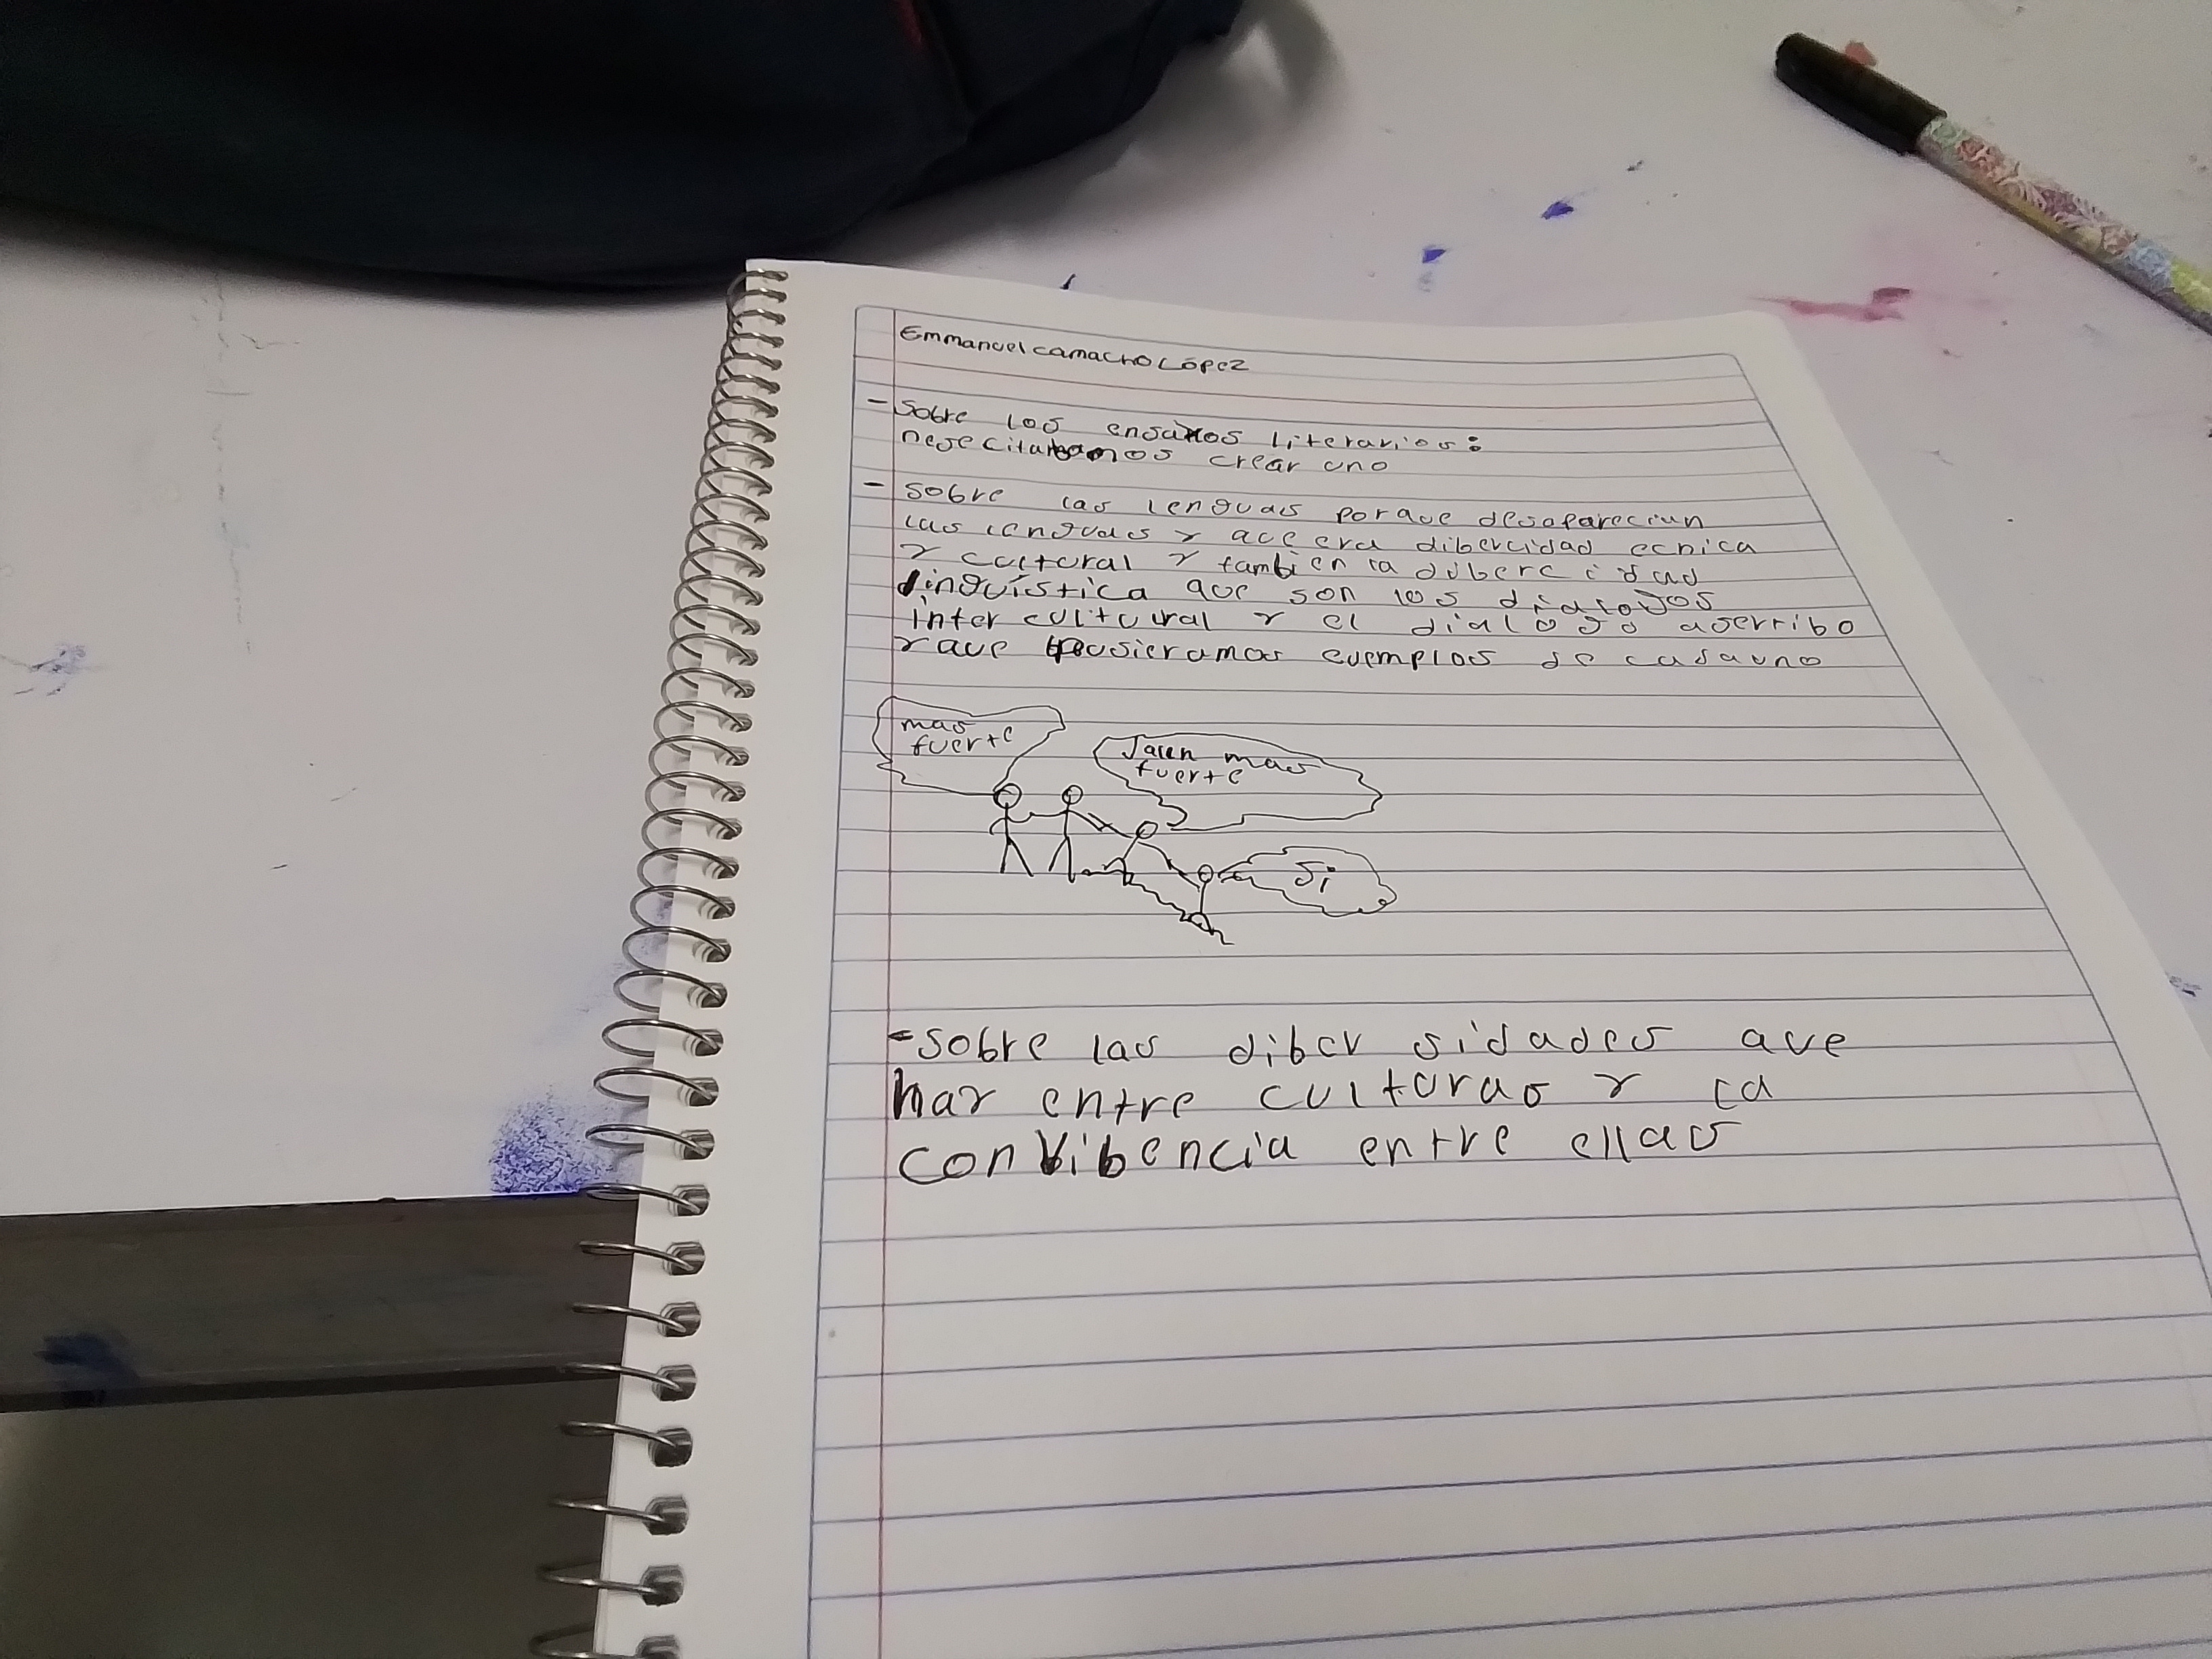 Emmanuel camacho López
- Sobre los ensayos literarios:
nesecitabamos crear uno
- sobre las lenguas porque desaparecian
las lenguas y que era dibercidad ecnica
y cultural y tambien la dibercidad
linguística que son los dialogos
intercultural y el dialogo aserribo
y que pusieramos evemplos de cada uno
mas
fuerte
Jalen mas
fuerte
Si
- sobre las diber sidades que
hay entre culturas y la
convibencia entre ellas